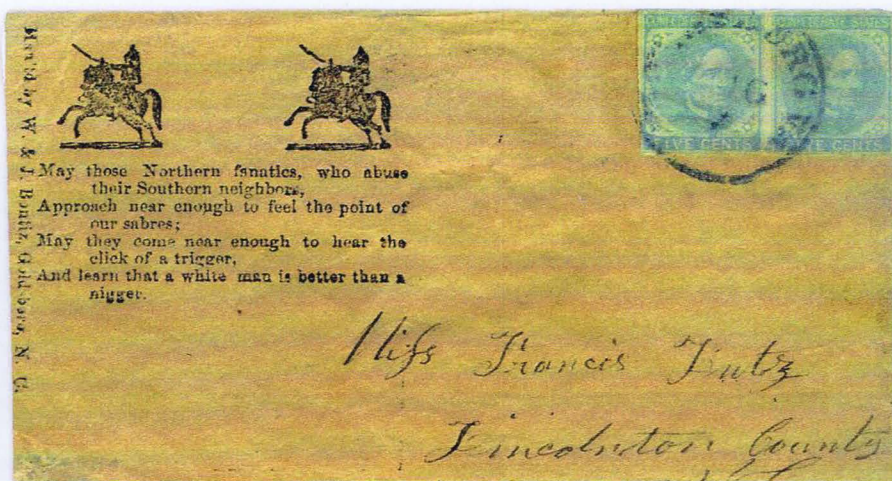 by W. & J. Bonitz, Goldsboro, N. C.
May those Northern fanatics, who abuse
their Southern neighbors,
Approach near enough to feel the point of
our sabres;
May they come near enough to hear the
click of a trigger,
And learn that a white man is better than a
nigger.
CONFEDERATE
CONFEDERATE STATES
FIVE CENTS
CENTS
Miss Francis
Lincolnton County